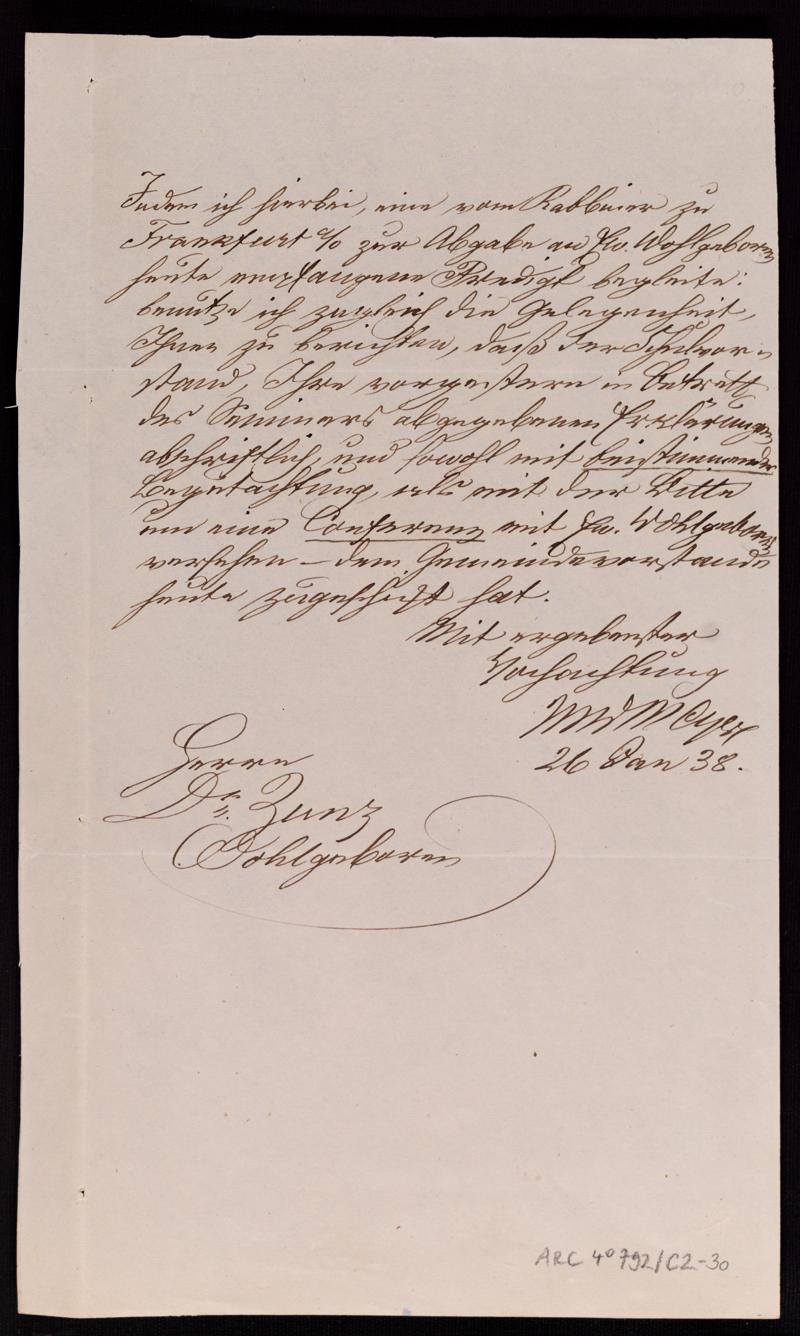 Indem ich hierbei, eine vom Rabbiner zu
Frankfurt a/o zur Abgabe an Ew. Wohlgeboren
heute empfangene Predigt begleite:
benutze ich zugleich die Gelegenheit,
Ihnen zu berichten, daß der Schulvor-
stand, Ihre vorgestern in Betreff
des Seminars abgegebenen Erklärungen
abschriftlich und sowohl mit beistimmender
Begutachtung, als mit der Bitte
um eine Conferenz mit Ew. Wohlgeboren
versehen – dem Gemeindevorstande
heute zugeschickt hat.
Mit ergebenster
Hochachtung
26 Jan 38.
Herrn
Dr. Zunz
Wohlgeboren
ARC 4º 792/C2-30